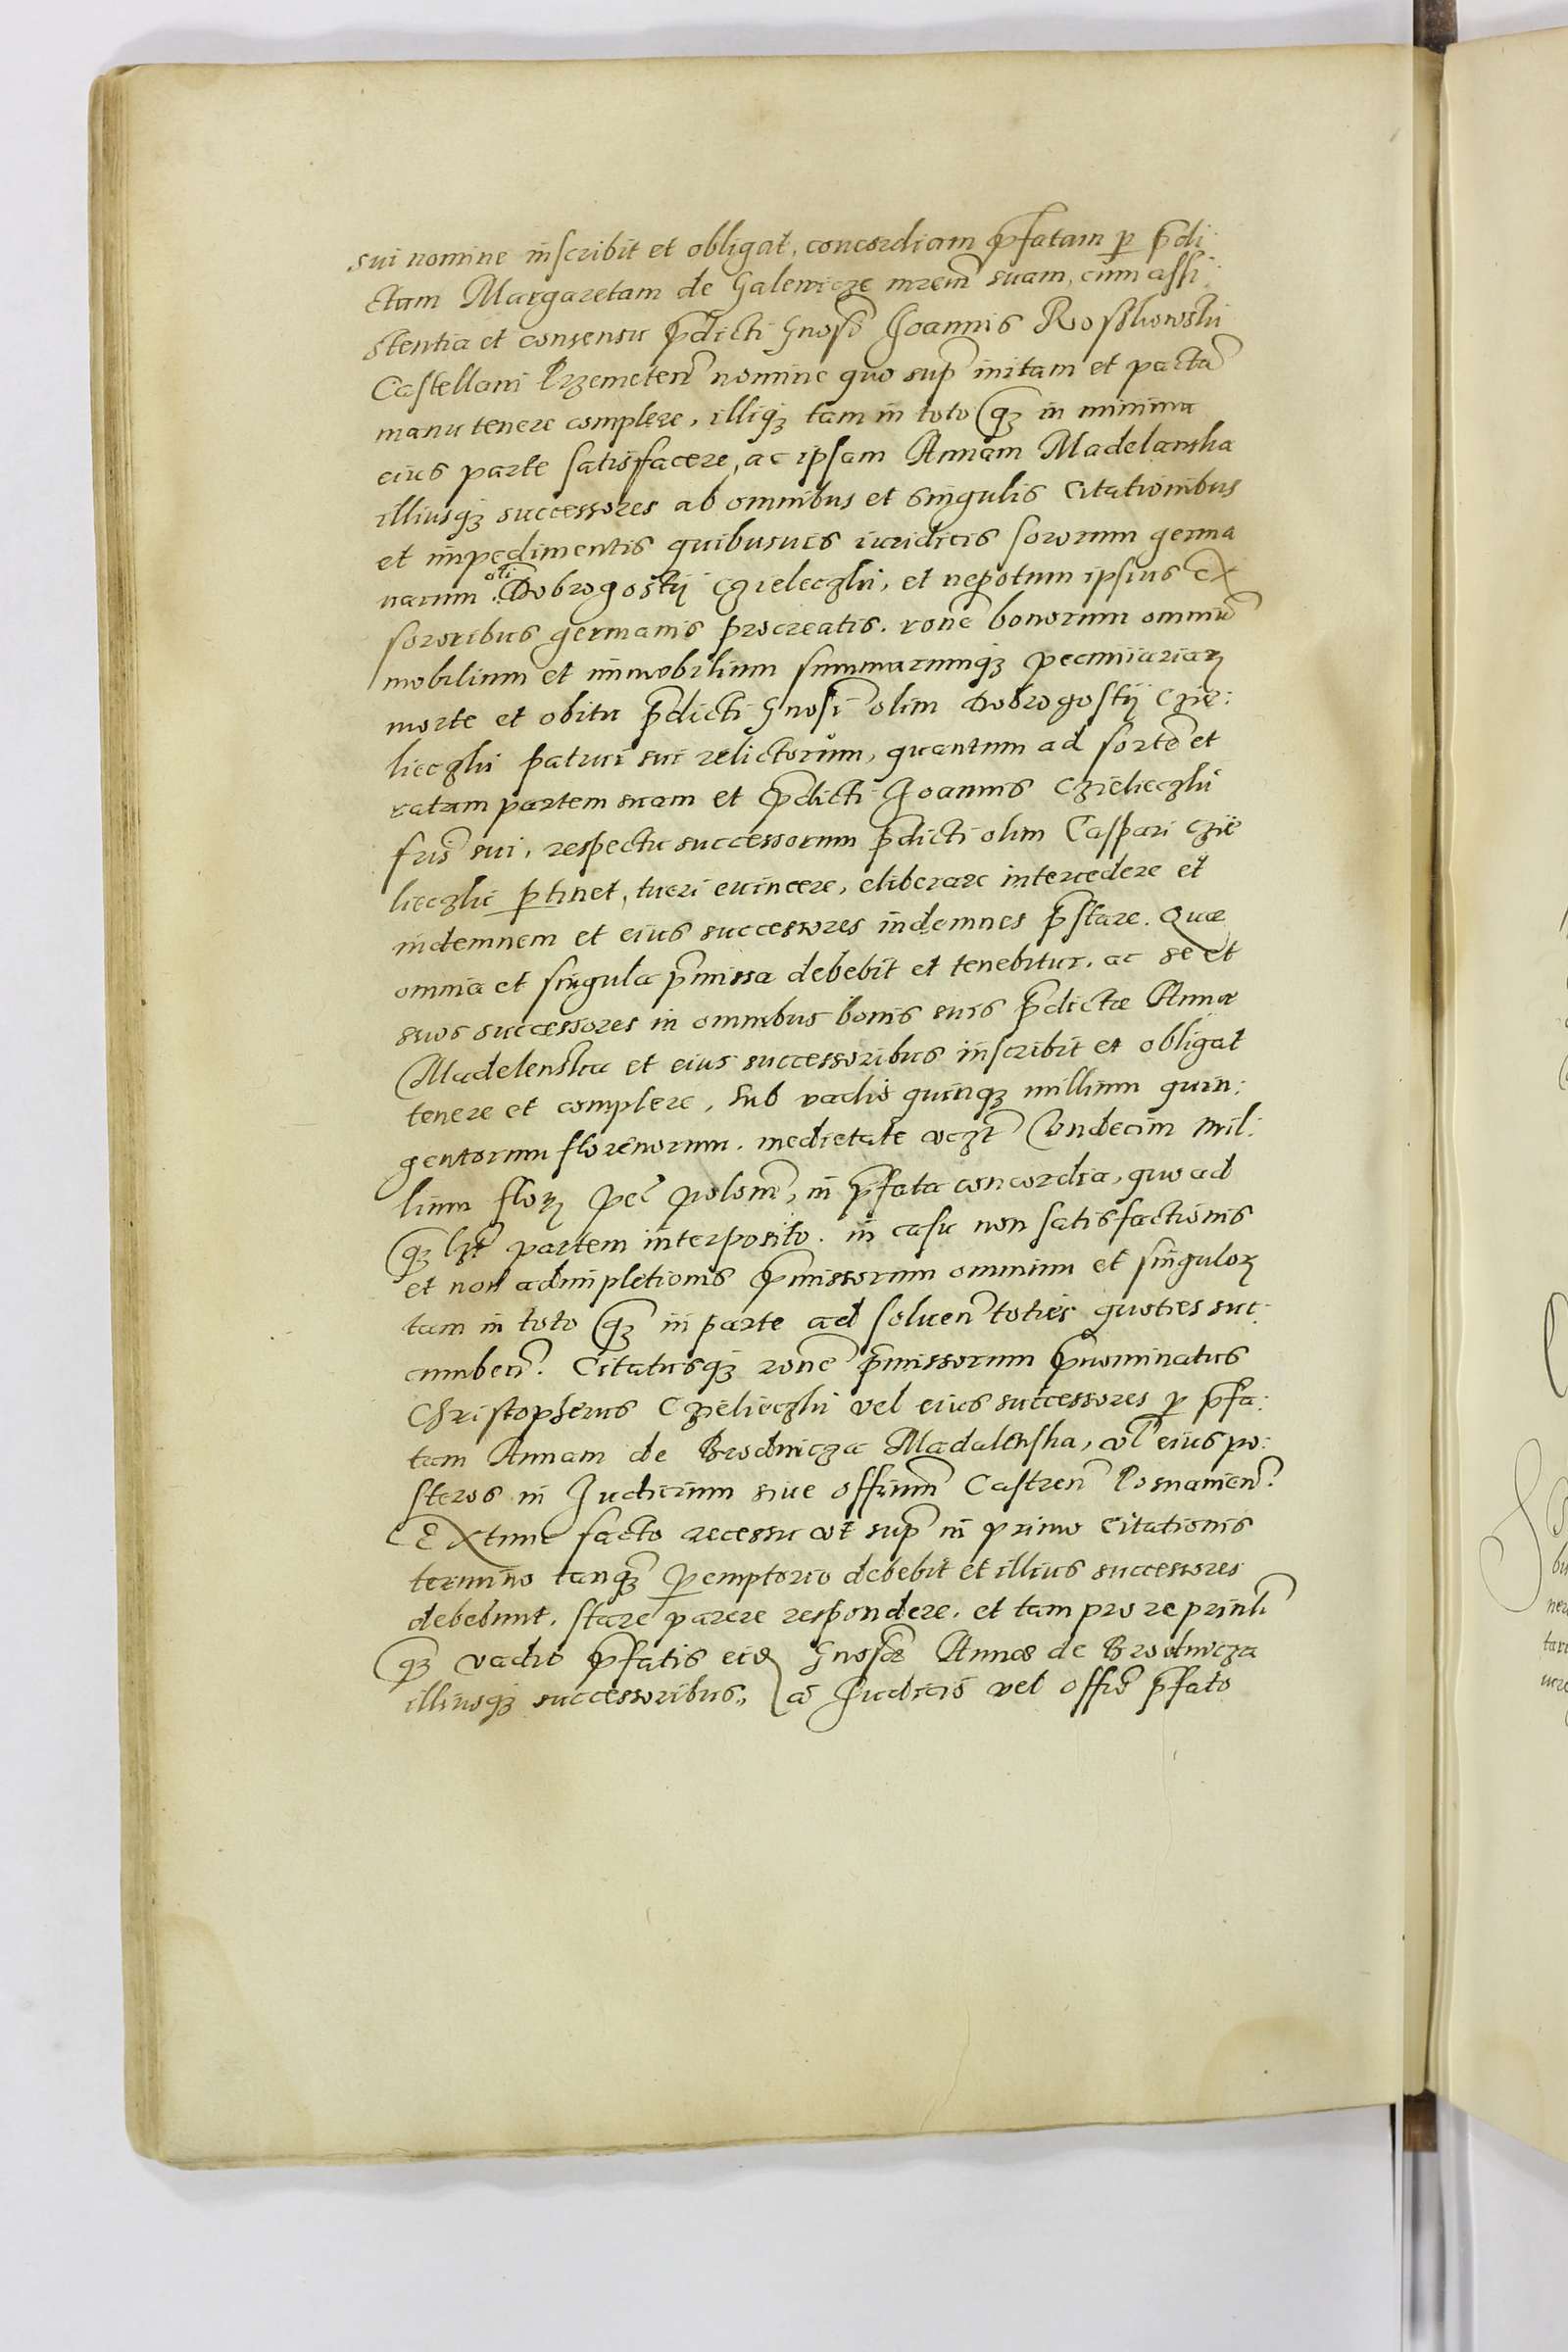 sui nomine inscribit et obligat, concordiam p̄fatam p p̄di
ctam Margaretam de Galewicze mrem̄ suam, cum assi:
stentia et consensu p̄dicti Gnosi Joannis Rosdrowski
Castellani Przemeten̄ nomine quo sup̄ initam et pactā
manutenere complere, illiq₃ tam in toto q₃ in minima
eius parte satisfacere, ac ipsam Annam Madelanska
illiusq₃ successores ab omnibus et singulis citationibus
et impedimentis quibusuis iuridicis sororum germa
narum oli Dobrogostij Czieleczki, et nepotum ipsius Ex
sororibus germanis procreatis. rone bonorum omniū
mobilium et immobilium summarumq₃ pecuniariaꝝ
morte et obitu p̄dicti Gnosi olim Dobrogostij Czie:
lieczki patrui sui relictorum, quantum ad sortē et
ratam partem suam et p̄dicti Joannis Czielieczki
fris̄ sui, respectu successorum p̄dicti olim Caspari Czie
lieczki ptinet, tueri euincere, eliberare intercedere et
indemnem et eius successores indemnes p̄stare. Quæ
omnia et singula p̄missa debebit et tenebitur. ac se et
suos successores in omnibus bonis suis p̄dictæ Annæ
Madelenska et eius successoribus inscribit et obligat
tenere et complere, sub vadio quinq₃ millium quin:
gentorum florenorum. medietate vczt̄ Vndecim Mil:
lium floꝝ pec̄ polon̄, in p̄fata concordia, quo ad
q₃ lzt̄ partem interposito. in casu non satisfactionis
et non adimpletionis p̄missorum omnium et singuloꝝ
tam in toto q₃ in parte ad soluen̄ toties quoties suc:
cumben̄. Citatusq₃ rone p̄missorum p̄nominatus
Christopherus Czielieczki vel eius successores p p̄fa:
tam Annam de Brodnicza Madalenska, vel eius po:
steros in Judicium siue offium̄ Castren̄ Posnanien̄.
Extunc facto recessu vt sup̄ in primo citationis
termino tanq₃ pemptorio debebit et illius successores
debebunt. stare parere respondere. et tam pro re prinli
q₃ vadio p̄fatis eid Gnosæ Annæ de Brodnicza
illiusq₃ successoribus, ac Judicio vel offio p̄fato